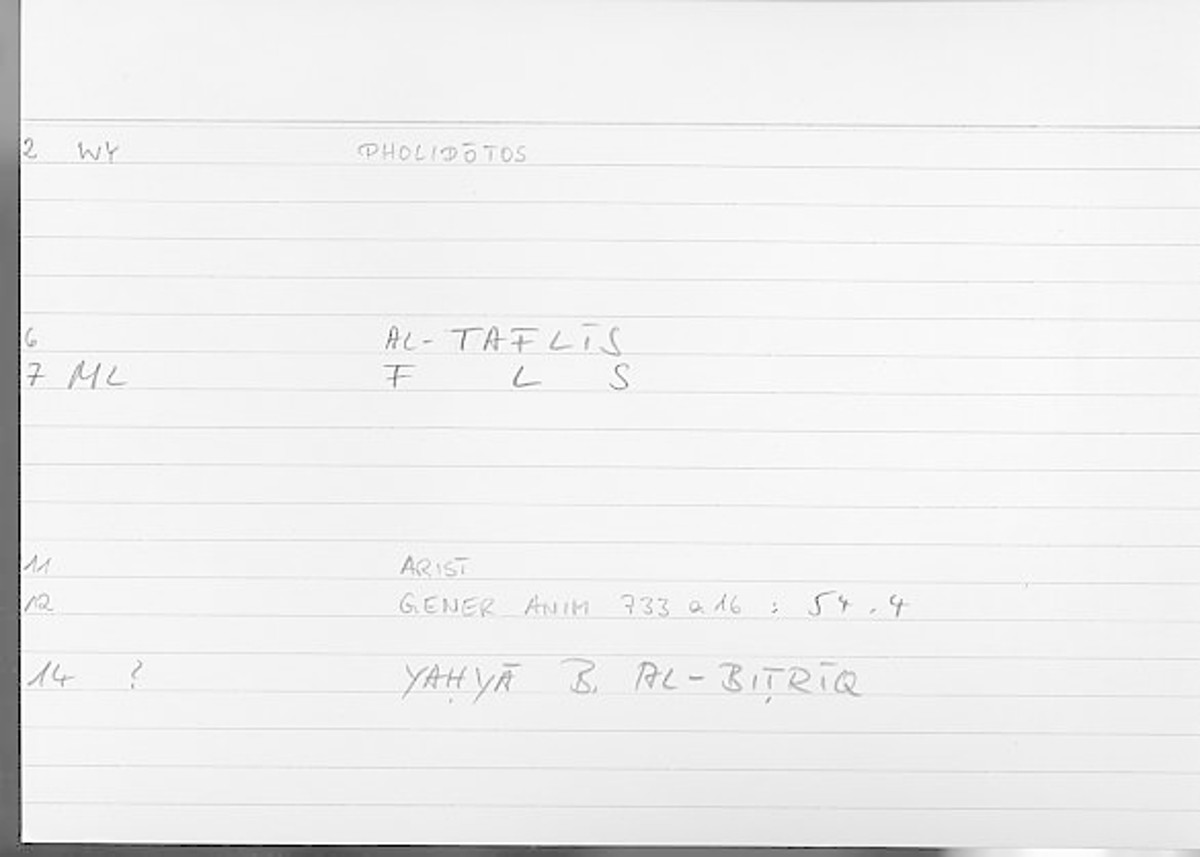 2 WY PHOLIDŌTOS
6 AL-TAFLĪS
7 ML F L S
11 ARIST
12 GENER ANIM 733 a 16 : 54.4
14 ? YAḤYĀ B. AL-BIṬRĪQ